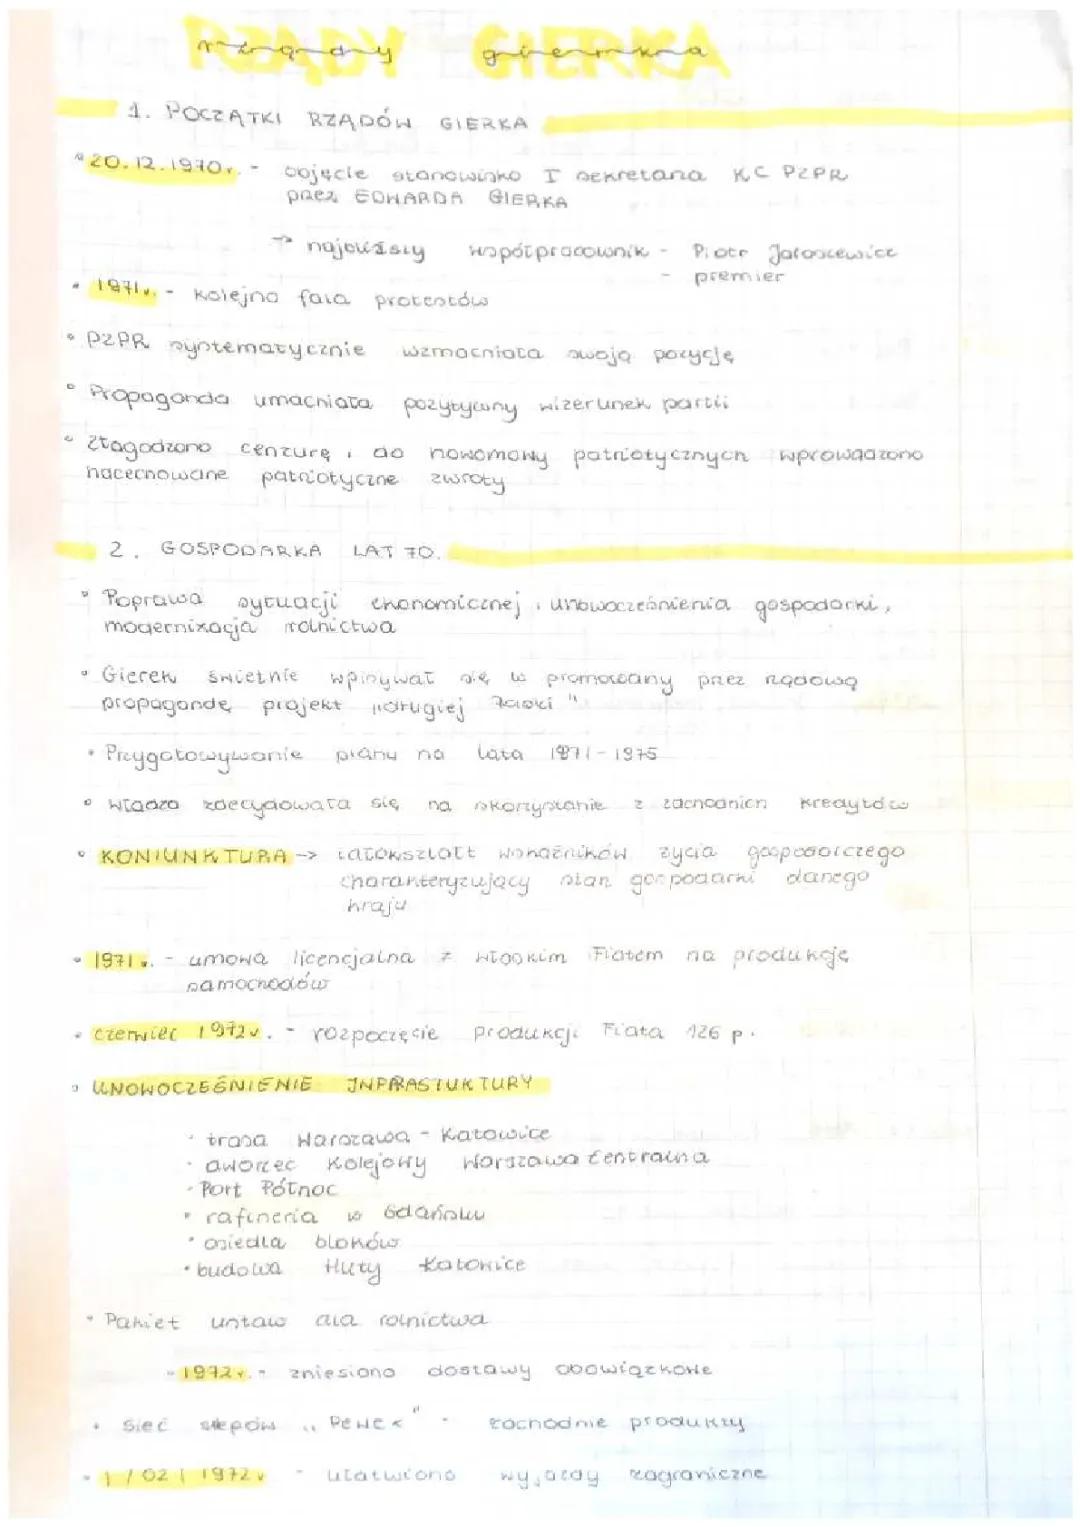 RZĄDY GIERKA
rządy gierka
1. POCZĄTKI RZĄDÓW GIERKA
20.12.1970r. - objęcie stanowisko I sekretarza KC PZPR
przez EDWARDA GIERKA
→ najbliższy współpracownik - Piotr Jaroszewicz
- premier
1971r. - kolejna fala protestów
PZPR systematycznie wzmacniała swoją pozycję
Propaganda umacniała pozytywny wizerunek partii
Złagodzono cenzurę, do nowomowy patriotycznych wprowadzono
nacechowane patriotyczne zwroty
2. GOSPODARKA LAT 70.
Poprawa sytuacji ekonomicznej, unowocześnienia gospodarki,
modernizacja rolnictwa
Gierek świetnie wpisywał się w promowany przez rządową
propagandę projekt "drugiej Polski"
Przygotowywanie planu na lata 1971-1975
Władza zdecydowała się na skorzystanie z zachodnich kredytów
KONIUNKTURA -> całokształt wskaźników życia gospodarczego
charakteryzujący stan gospodarki danego
kraju
1971r. - umowa licencjalna z włoskim Fiatem na produkcję
samochodów
czerwiec 1972r. - rozpoczęcie produkcji Fiata 126 p.
UNOWOCZEŚNIENIE INFRASTUKTURY
trasa Warszawa - Katowice
dworzec kolejowy Warszawa Centralna
Port Północ
rafineria w Gdańsku
osiedla bloków
budowa Huty Katowice
Pakiet ustaw dla rolnictwa
1972r. - zniesiono dostawy obowiązkowe
Sieć sklepów "Pewex" - zachodnie produkty
1/02/1972r - ułatwiono wyjazdy zagraniczne